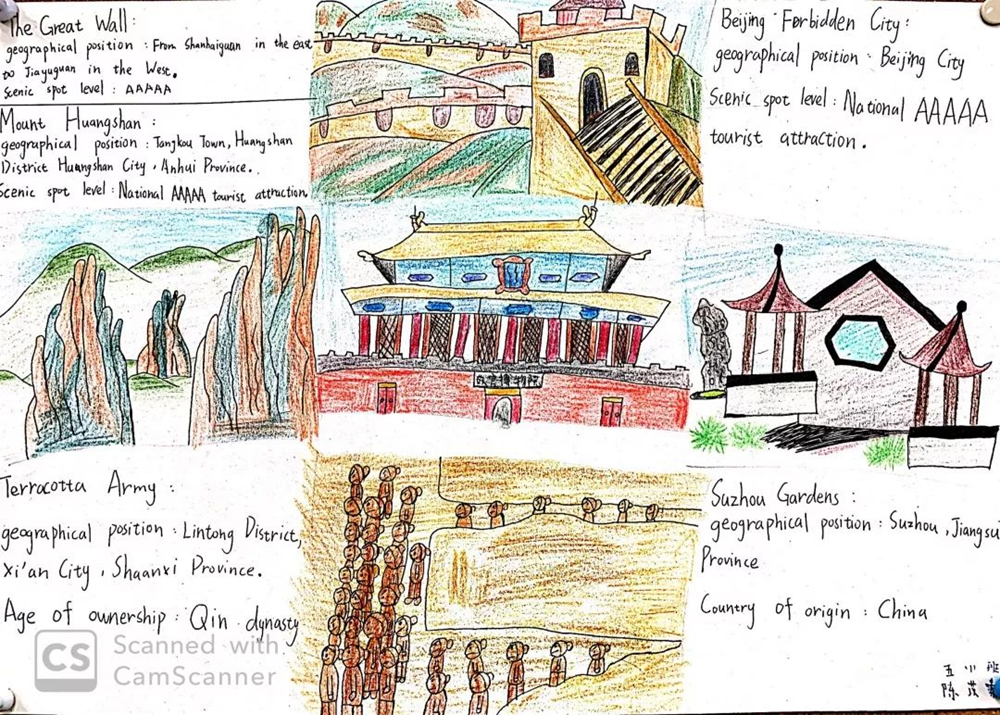 The Great Wall:
geographical position: From Shanhaiguan in the east
to Jiayuguan in the West.
Scenic spot level: AAAAA
Mount Huangshan:
geographical position: Tangkou Town, Huangshan
District Huangshan City, Anhui Province.
Scenic spot level: National AAAAA tourist attraction
Beijing Forbidden City:
geographical position: Beijing City
Scenic spot level: National AAAAA
tourist attraction.
Terracotta Army:
geographical position: Lintong District,
Xi'an City, Shaanxi Province.
Age of ownership: Qin dynasty
Suzhou Gardens:
geographical position: Suzhou, Jiangsu
Province
Country of origin: China
五 小 班
陈 茂
CS Scanned with
CamScanner